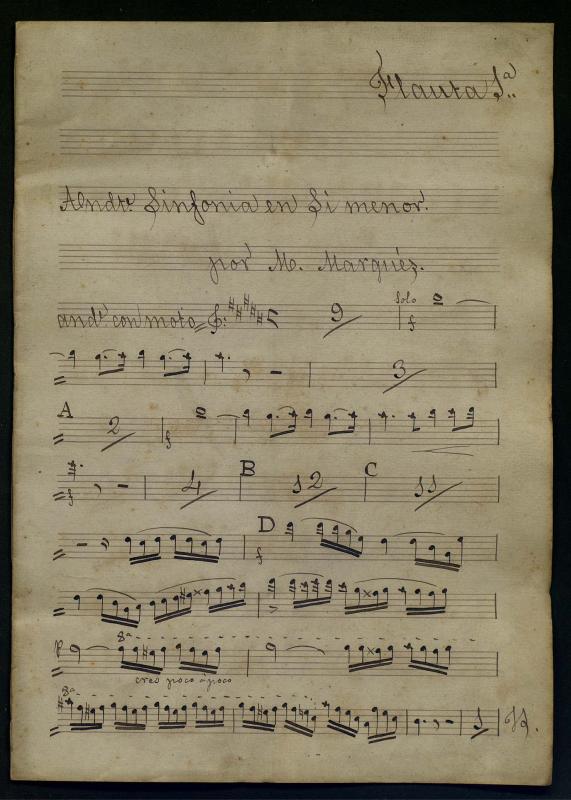 Flauta 1ª
Andte. Sinfonia en Si menor.
por M. Marqués.
andte. con moto 9 Solo f
3
A 2 f
f 4 B 12 C 11
D f
8ª
cres poco á poco
8ª 1